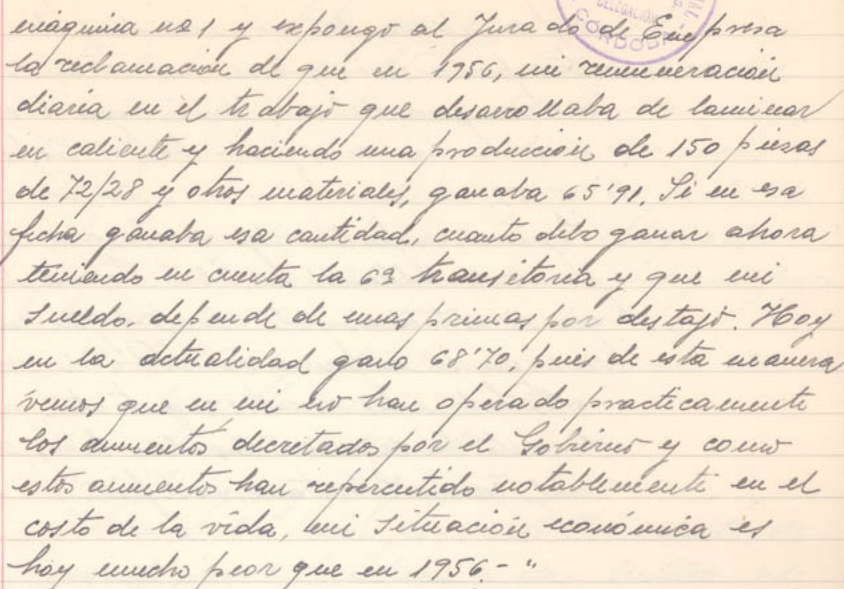 DELEGACIÓN
CÓRDOBA
máquina nº 1 y expongo al Jurado de Empresa
la reclamación de que en 1956, mi remuneración
diaria en el trabajo que desarrollaba de laminar
en caliente y haciendo una producción de 150 piezas
de 72/28 y otros materiales, ganaba 65'91. Si en esa
fecha ganaba esa cantidad, cuanto debo ganar ahora
teniendo en cuenta la 6ª transitoria y que mi
sueldo, depende de unas primas por destajo. Hoy
en la actualidad gano 68'70, pues de esta manera
vemos que en mi no han operado practicamente
los aumentos decretados por el Gobierno y como
estos aumentos han repercutido notablemente en el
costo de la vida, mi situación económica es
hoy mucho peor que en 1956.- "